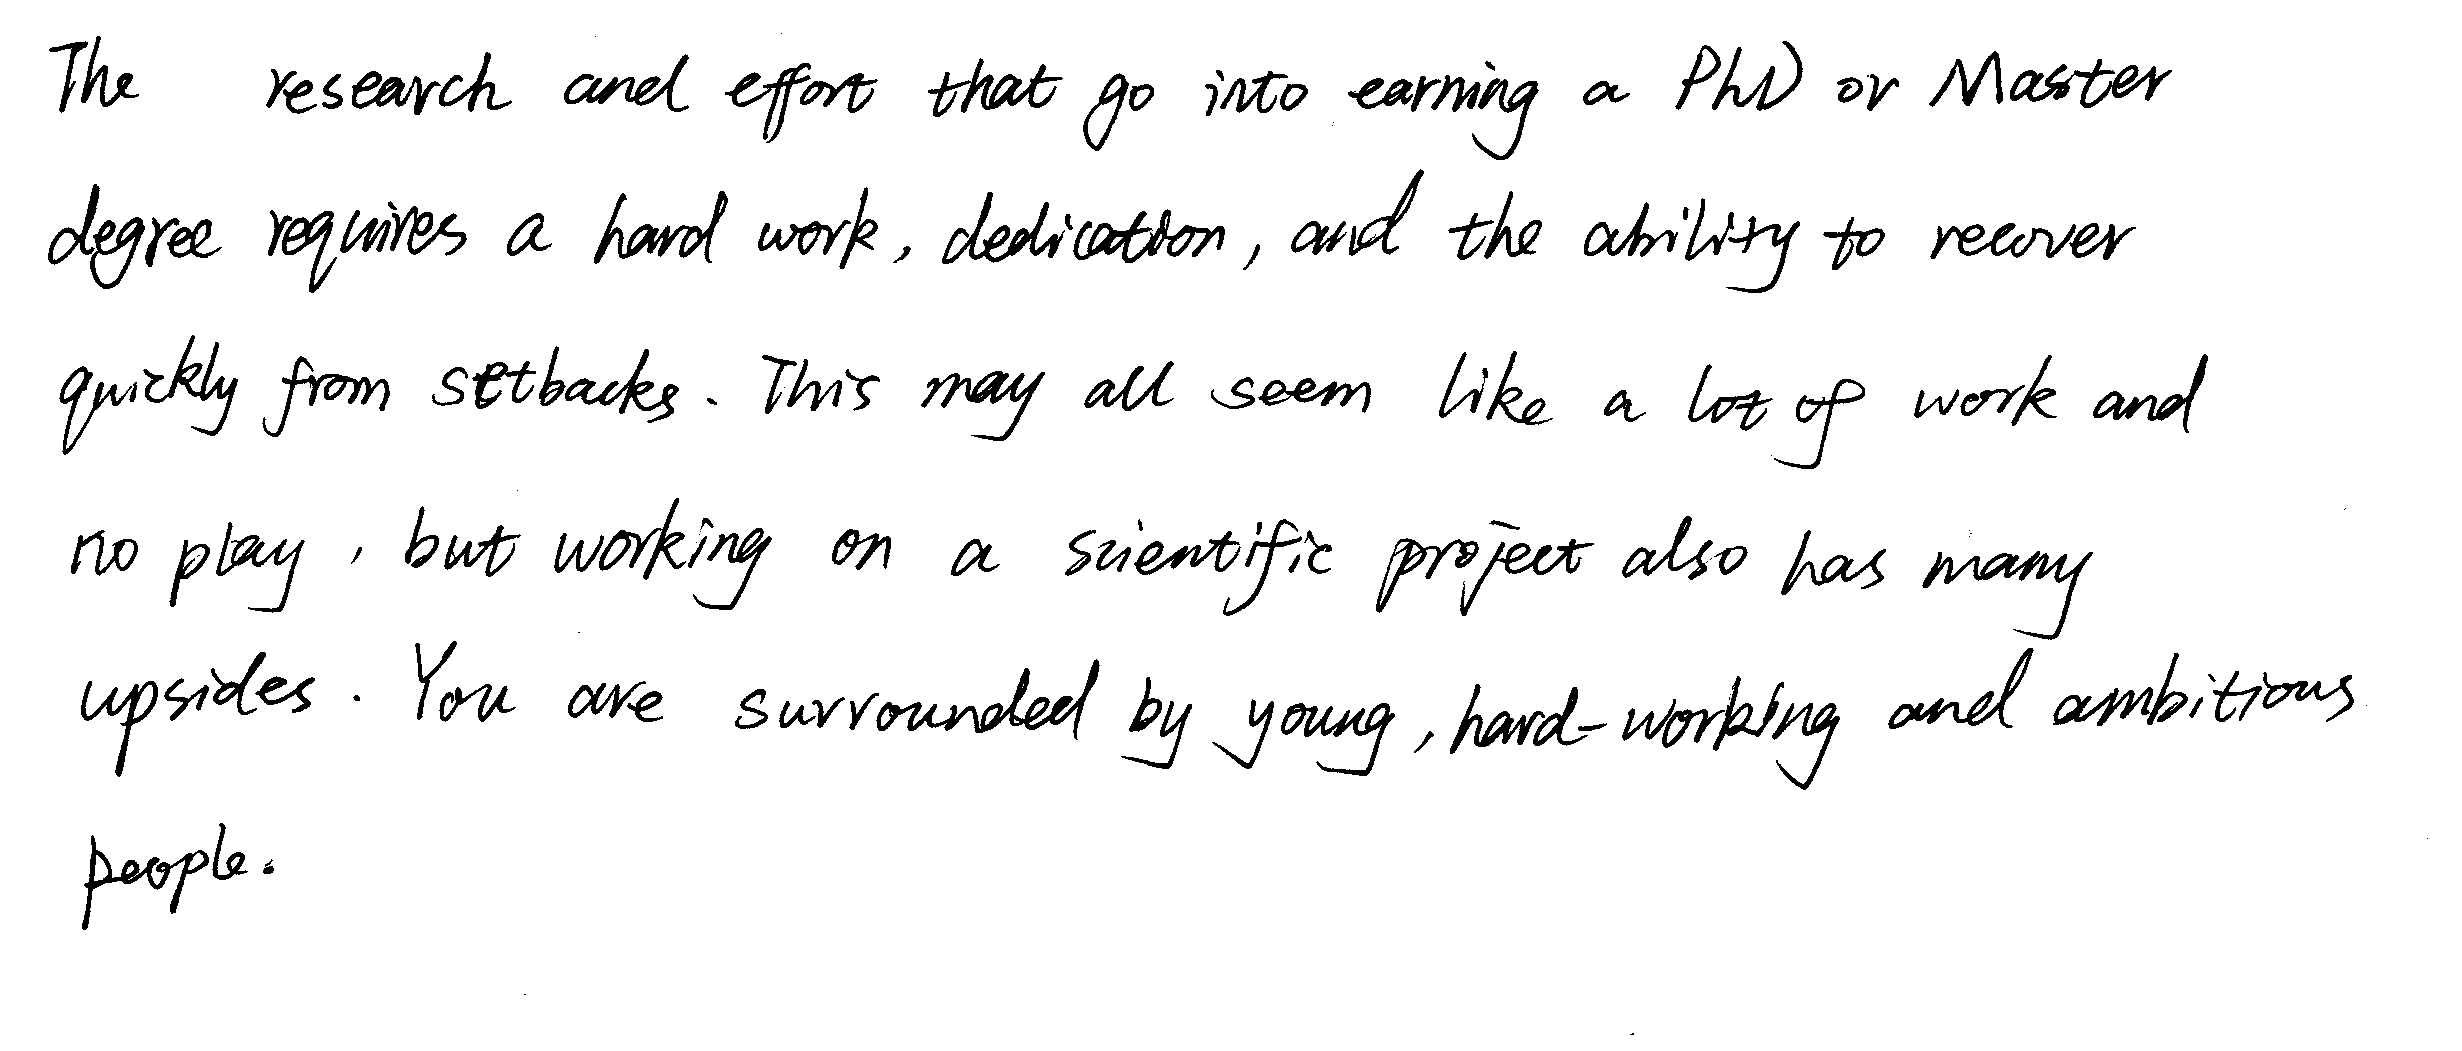 The research and effort that go into earning a PhD or Master
degree requires a hard work, dedication, and the ability to recover
quickly from setbacks. This may all seem like a lot of work and
no play, but working on a scientific project also has many
upsides. You are surrounded by young, hard-working and ambitious
people.